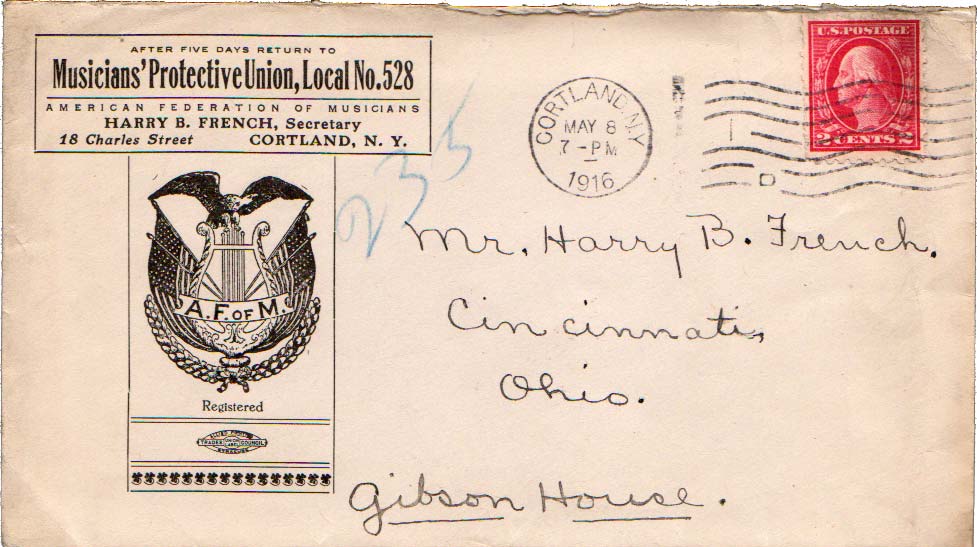 AFTER FIVE DAYS RETURN TO
Musicians' Protective Union, Local No. 528
AMERICAN FEDERATION OF MUSICIANS
HARRY B. FRENCH, Secretary
18 Charles Street CORTLAND, N. Y.
235
CORTLAND, N.Y.
MAY 8
7-PM
1916
U.S. POSTAGE
2 CENTS 2
Mr. Harry B. French.
Cincinnati,
Ohio.
Gibson House.
A. F. OF M.
Registered
ALLIED PRINTING
TRADES UNION LABEL COUNCIL
SYRACUSE